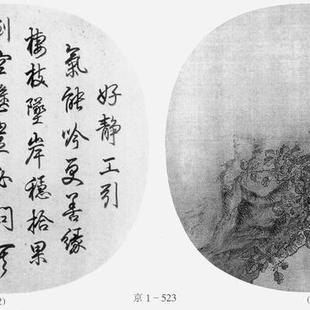 好静工引
氣能吟更善緣
棲枝墜岸穩拾果
到空
2)
京1－523
(